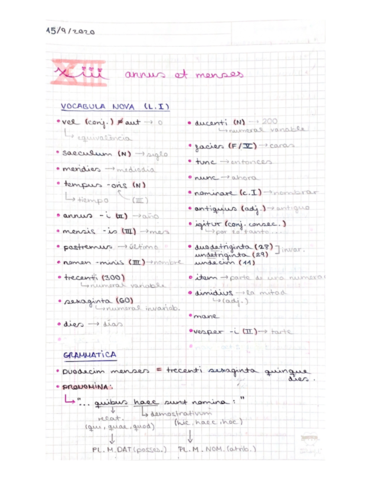 15/9/2020
xiii annus et menses
VOCABULA NOVA (L.I)
• vel (conj.) ≠ aut → o
↳ equivalência
• saeculum (N) → siglo
• meridies → mediodía
• tempus -oris (N)
↳ tiempo (III)
• annus -i (II) → año
• mensis -is (III) → mes
• postremus → último
• nomen -minis (III) → nombre
• trecenti (300)
↳ numeral variable
• sexaginta (60)
↳ numeral invariab.
• dies → días
• ducenti (N) → 200
↳ numeral variable
• facies (F/IV) → caras
• tunc → entonces
• nunc → ahora
• nominare (c.I) → nombrar
• antiquus (adj.) → antiguo
• igitur (conj. consec.)
↳ por lo tanto...
• duodetriginta (28)
undetriginta (29) invar.
undecim (11)
• item → parte de una numeral
• dimidius → la mitad
↳ (adj.)
• mane
• vesper -i (II) → tarde
GRAMMATICA
• Duodecim menses = trecenti sexaginta quinque
dies.
• PRONOMINA:
↳ "... quibus haec sunt nomina: "
relat. ↳ demostrativum
(qui, quae, quod) (hic, haec, hoc)
PL. M. DAT (posses.) PL. M. NOM. (atrib.)